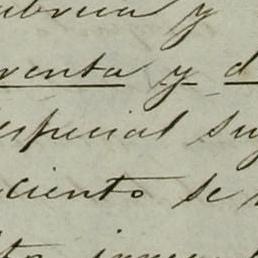 ubrica y
renta y d
especial su
ciento se